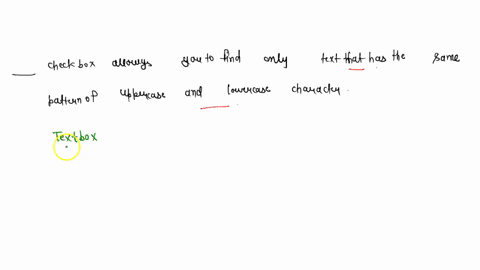 ___ checkbox allows you to find only text that has the same
pattern of uppercase and lowercase character.
Textbox